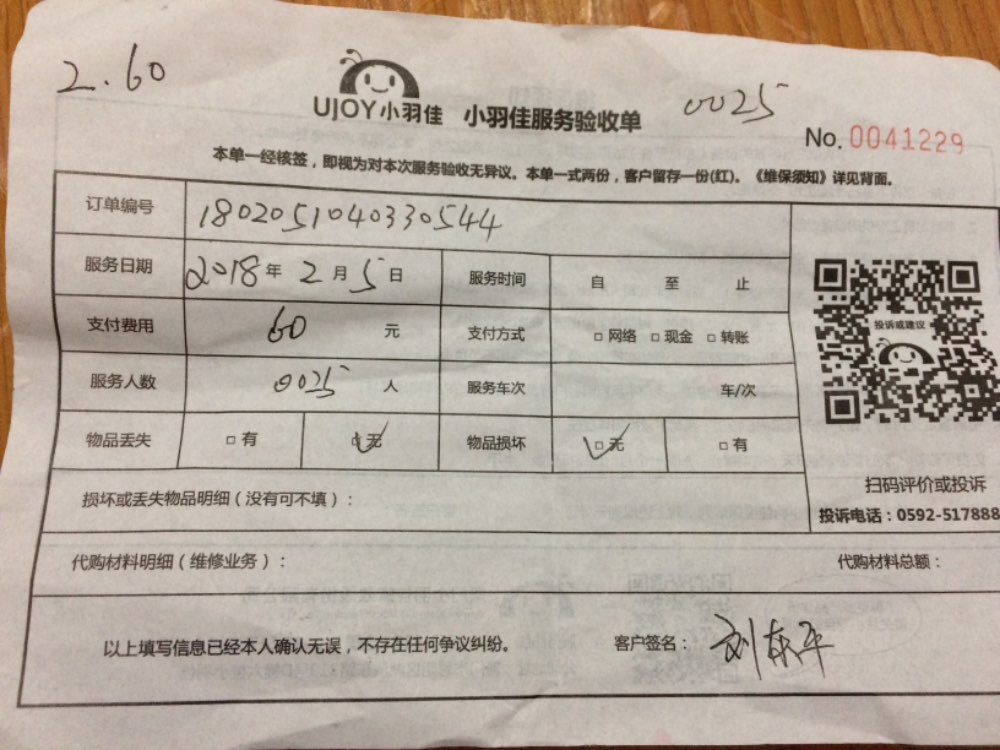 2.60
UJOY小羽佳 小羽佳服务验收单
0025
No. 0041229
本单一经核签，即视为对本次服务验收无异议。本单一式两份，客户留存一份(红)。《维保须知》详见背面。
订单编号 1802051040330544
服务日期 2018年 2月 5日 服务时间 自 至 止
支付费用 60 元 支付方式 □网络 □现金 □转账
服务人数 0025 人 服务车次 车/次
物品丢失 □有 □无 物品损坏 □无 □有
投诉或建议
扫码评价或投诉
投诉电话：0592-517888
损坏或丢失物品明细（没有可不填）：
代购材料明细（维修业务）： 代购材料总额：
以上填写信息已经本人确认无误，不存在任何争议纠纷。 客户签名：刘东平